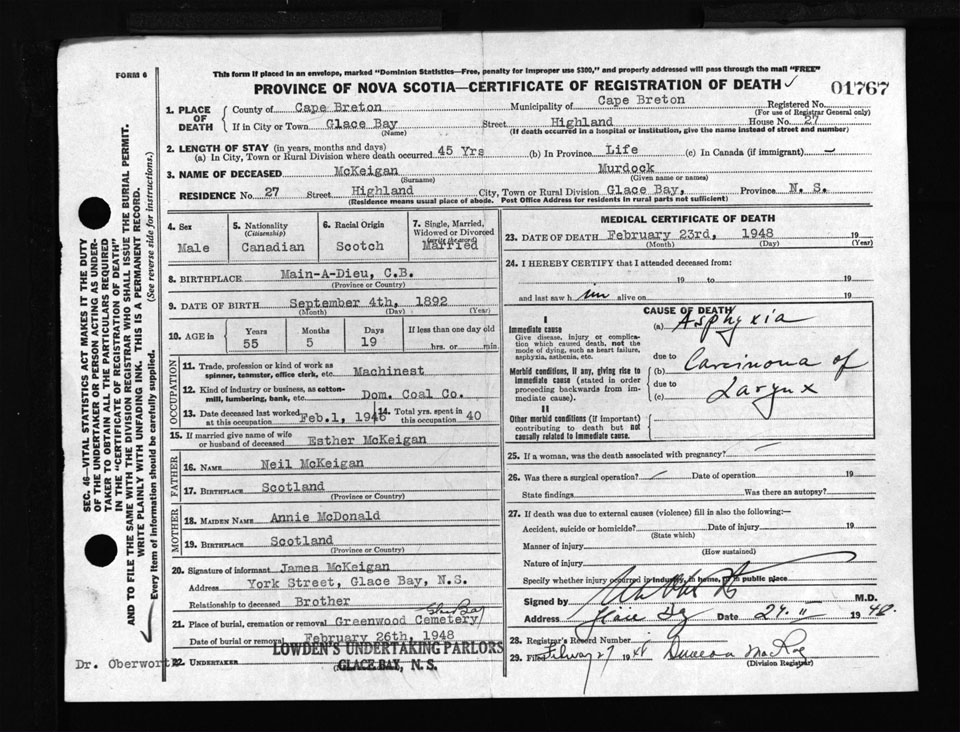 This form if placed in an envelope, marked "Dominion Statistics—Free, penalty for improper use $300," and property addressed will pass through the mail "FREE"
FORM 6
PROVINCE OF NOVA SCOTIA—CERTIFICATE OF REGISTRATION OF DEATH
01767
1. PLACE OF DEATH
County of Cape Breton Municipality of Cape Breton Registered No.
(For use of Registrar General only)
If in City or Town Glace Bay Street Highland House No. 27
(Name) (If death occurred in a hospital or institution, give the name instead of street and number)
2. LENGTH OF STAY (in years, months and days)
(a) In City, Town or Rural Division where death occurred 45 Yrs (b) In Province Life (c) In Canada (if immigrant) —
3. NAME OF DECEASED McKeigan Murdock
(Surname) (Given name or names)
RESIDENCE No. 27 Street Highland City, Town or Rural Division Glace Bay, Province N. S.
(Residence means usual place of abode. Post Office Address for residents in rural parts not sufficient)
4. Sex Male
5. Nationality (Citizenship) Canadian
6. Racial Origin Scotch
7. Single, Married, Widowed or Divorced (write the word) Married
8. BIRTHPLACE Main-A-Dieu, C.B.
(Province or Country)
9. DATE OF BIRTH September 4th, 1892
(Month) (Day) (Year)
10. AGE in Years 55 Months 5 Days 19 If less than one day old hrs. or min.
OCCUPATION
11. Trade, profession or kind of work as spinner, teamster, office clerk, etc. Machinest
12. Kind of industry or business, as cotton-mill, lumbering, bank, etc. Dom. Coal Co.
13. Date deceased last worked at this occupation Feb.1, 1946
14. Total yrs. spent in this occupation 40
15. If married give name of wife or husband of deceased Esther McKeigan
FATHER
16. NAME Neil McKeigan
17. BIRTHPLACE Scotland
(Province or Country)
MOTHER
18. MAIDEN NAME Annie McDonald
19. BIRTHPLACE Scotland
(Province or Country)
20. Signature of informant James McKeigan
Address York Street, Glace Bay, N.S.
Relationship to deceased Brother
21. Place of burial, cremation or removal Greenwood Cemetery
Date of burial or removal February 26th, 1948
22. UNDERTAKER LOWDEN'S UNDERTAKING PARLORS
GLACE BAY, N. S.
Dr. Oberwort
MEDICAL CERTIFICATE OF DEATH
23. DATE OF DEATH February 23rd, 1948 19
(Month) (Day) (Year)
24. I HEREBY CERTIFY that I attended deceased from:
19 to 19
and last saw h im alive on 19
CAUSE OF DEATH
I
Immediate cause
Give disease, injury or complication which caused death, not the mode of dying, such as heart failure, asphyxia, asthenia, etc.
(a) Asphyxia
due to
Morbid conditions, if any, giving rise to immediate cause (stated in order proceeding backwards from immediate cause).
(b) Carcinoma of
due to
(c) Larynx
II
Other morbid conditions (if important) contributing to death but not causally related to immediate cause.
25. If a woman, was the death associated with pregnancy?
26. Was there a surgical operation? Date of operation 19
State findings Was there an autopsy?
27. If death was due to external causes (violence) fill in also the following:—
Accident, suicide or homicide? Date of injury 19
(State which)
Manner of injury
(How sustained)
Nature of injury
Specify whether injury occurred in industry, in home, or in public place
Signed by M.D.
Address Glace Bay Date 24. II 1948.
28. Registrar's Record Number
29. Filed 27 1948
(Division Registrar)
SEC. 46—VITAL STATISTICS ACT MAKES IT THE DUTY OF THE UNDERTAKER OR PERSON ACTING AS UNDERTAKER TO OBTAIN ALL THE PARTICULARS REQUIRED IN THE "CERTIFICATE OF REGISTRATION OF DEATH" AND TO FILE THE SAME WITH THE DIVISION REGISTRAR WHO SHALL ISSUE THE BURIAL PERMIT.
WRITE PLAINLY WITH UNFADING INK. THIS IS A PERMANENT RECORD.
Every item of information should be carefully supplied. (See reverse side for instructions.)